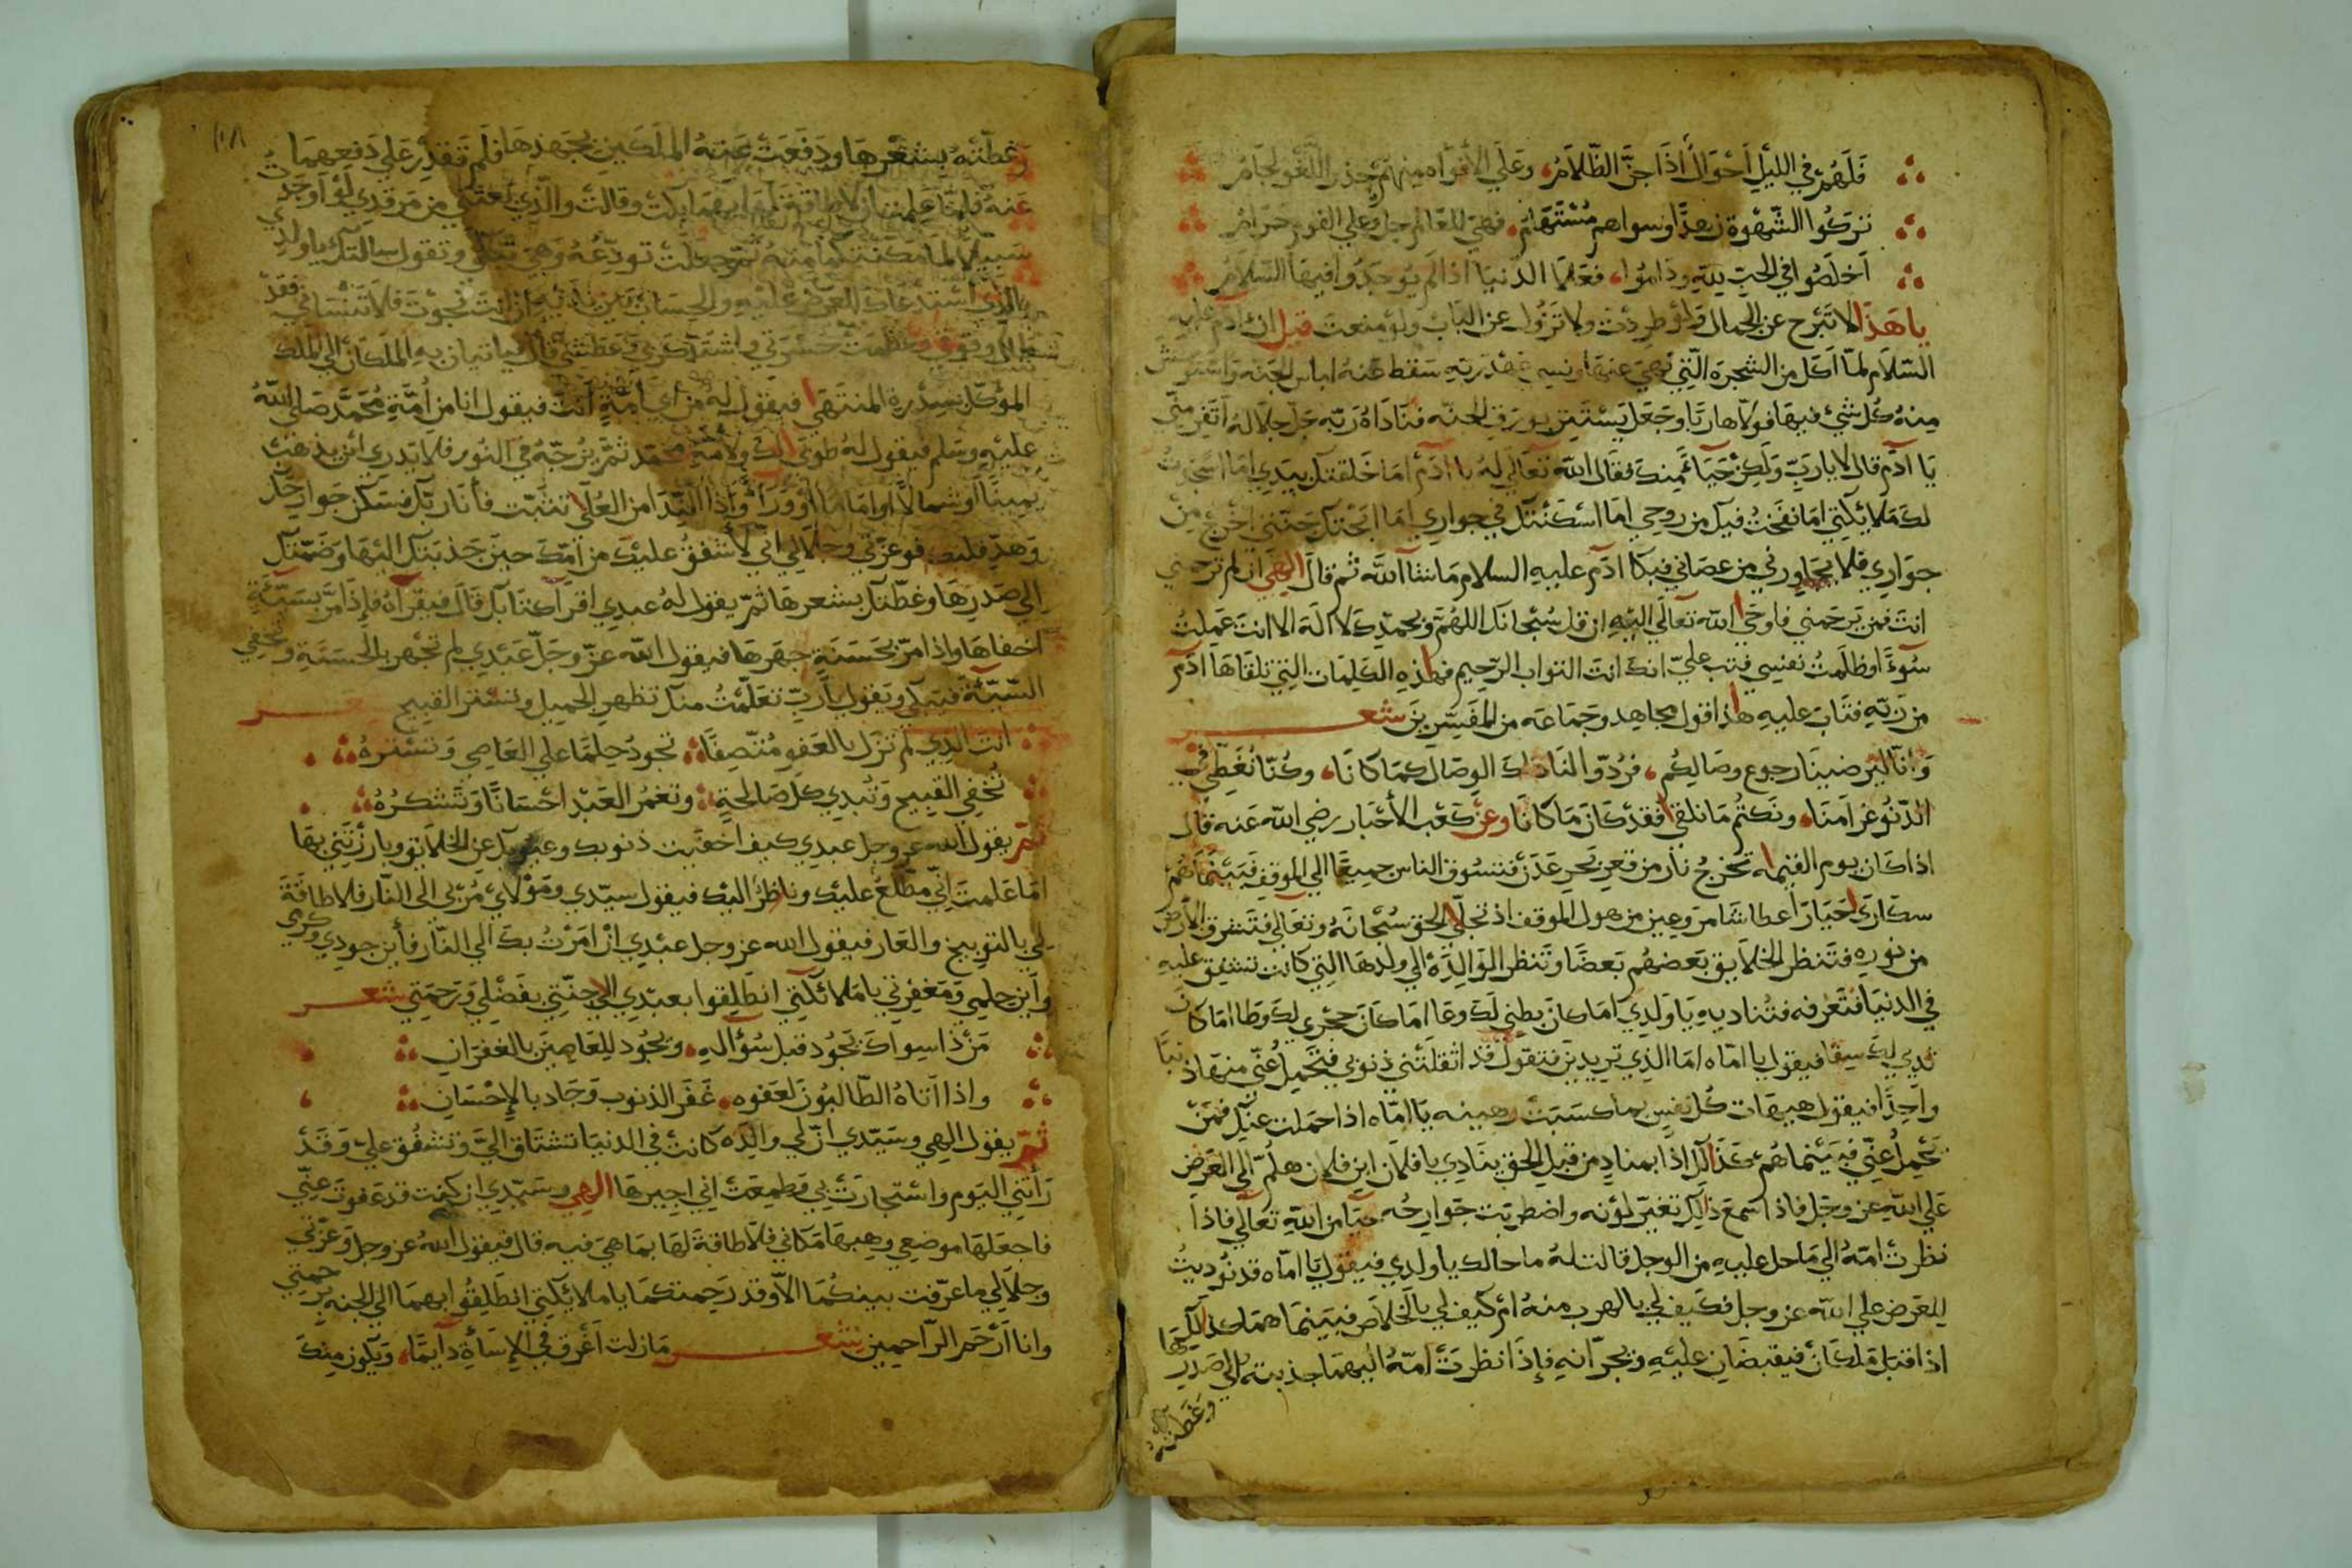 فَلَهُمْ في الليْلِ اَحْوَالٌ اذَا جنَّ الظّلامُ، وعَلَي الأفْوَاه منهم حذر اللّغْو لجَامُ
تركُوا الشّهْوة زهدًا وسواهم مُسْتَهَامُ، فهي للعَالم جل وعلي القوم حرامُ
اَخلَصُوا في الحبّ لِلّهِ ودَامُوا، فعَلَا الدّنيَا اذا لم يوجَدُوا فيهَا السّلامُ
يا هَذا لا تَبْرح عن الجمال ولو طردْت ولا تزُول عن البَاب ولو منعت قيل ان ادَم عليه
السّلام لمّا اَكل من الشجرَه الّتي نهي عنهَا ونسي عَهْد ربّهِ سَقط عَنهُ لباس الجَنه وَاستَوحَش
منهُ كُل شيْ فيهَا فولّا هاربًا وجَعَل يَسْتَتِر بورق الجنّه فنَادَاهُ رَبّه جَلّ جلَالهُ اَتَفِر منّي
يَا آدَم قال لا يا رَبِّ وَلكِن حَيَاءً مِنك فقالَ اللّه تعَالَي لهُ يا آدَم امَا خَلقتك بيَدِي امَا اسْجَدتُ
لكَ مَلايكَتي امَا نفَخْتُ فيك من روحي امَا اسْكَنْتك في جواري امَا ابَحْتك جَنتي اخرُج مِن
جوَاري فلا يجَاورني من عصَاني فبكَا ادَم عليهِ السلام مَا شَا اللَّه ثم قالَ الهَي ان لم ترحمني
انتَ فمَن يَرحَمني فاوحَي اللّه تعَالَي اليْهِ ان قل سُبْحانك اللهُمّ وبحمدِكَ لا الهَ الا انت عَمِلتُ
سُوءًا وظلَمتُ نفسي فتب عليّ انكَ انتَ التواب الرّحيم فهذِه الكَلِمَات التي تلقاهَا آدَم
من رّبّهِ فتَابَ عليهِ هذا قول مجاهد وجمَاعَه من المفَسّرِينَ شعر
وَإنّا لترضينَا رجوع وصَالِكُم، فرُدّوا لنَا ذاكَ الوصَال كمَا كانَا، وكُنّا نُغَطّي في
الدّنُو غرَامنَا، ونكتُم مَا نلقي فقدْ كانَ مَا كانَا وعَنْ كعْب الأحْبَار رضي الله عَنه قال
اذا كان يوم القيمه تخرجُ نار من قعر بَحر عَدَن فتسُوق الناس جميعًا الي الموقف فبَيْنمَا هُمْ
سكارَي حيَارَا عطاشَا مرَوعِين من هول الموقف اذ تجلّي الحق سُبْحَانَهُ وتعَالي فتَشرق الأرض
من نوره فتَنظر الخلَايق بَعضهُم بَعضًا وتنظر الوَالِدَة الي ولدهَا التِي كانت تشفِق عليهِ
في الدنيَا فتَعْرفه فتُناديهِ يَا وَلدي امَا كانَ بطني لكَ وعَاء امَا كانَ حجْري لكَ وطَا امَا كانَ
ثديي لكَ سِقَا فيقول يا امّاه امَا الذي تريدِين فتقُول قد اثقلَتْني ذنوبي فتَحْمِل عَنّي منهَا ذنبًا
واحِدًا فيقول هيهَات كُل نفسٍ بما كسَبَت رهينه يَا امّاه اذا حمَلت عنْكِ فمَنْ
يَحْمِلُ عنّي فبَيْنمَا هُم كذَالِك اذا بمنادٍ من قبل الحق ينَادِي يا فلَان ابن فلان هلُمّ الَي العَرض
عَلي اللّهِ عز وجَل فاذا سَمِعَ ذالِك تغيّر لونه واضطربَت جَوَارحُه حيَا من اللّهِ تعَالي فاذا
نظرتْ امّهُ الي مَا حل عليهِ من الوجل قالت لهُ ما حالك يا ولدي فيقول يا امّاه قد نُودِيتُ
للعَرض علي اللّه عز وجل فكَيف لي بالهرب منهُ ام كَيف لي بالخلَاص فبَينَمَا همَا كذالك
اذا قبَل مَلكَانْ فيَقبضَانِ عليْهِ ويجرّانهِ فإذَا نظرَتْ امّهُ اليهمَا جذبتهُ الي صَدرهَا
وغَطّتهُ
١٠٨
وغطّتْهُ بشعْرهَا ودَفعَتْ عَنهُ الملَكَينِ بجَهدهَا فلم تقدِر عَلي دَفعِهمَا
عَنهُ فلمَّا عَلمت ان لا طاقة لهَا بهمَا بكت وقالتْ والّذي بَعثَني من مَرقدي لَوْ اَوجَدُ
سَبيلًا لما مَكنتكمَا مِنهُ ثمّ جعَلت تودّعُهُ وَهيَ تبكي وتقول سالتك يا ولدي
بالذي استَدعَاك للعَرض عَليهِ والحسَاب بَين يَدَيْهِ ان انتَ نجَوْت فلا تَنْسَاني فقَدْ
طال وقوفي وعظمت حَسْرتي واشتدّ كربي وعَطشي قال فيَاتيان بهِ الملَكان الي الملك
المؤكّل بسِدْرة المنتهَي فيَقول لهُ من اي امّةٍ اَنتَ فيقول انا من اُمّةِ مُحَمّد صَلي اللّهُ
عليهِ وسَلم فيَقول لهُ طوبَي لكَ ولأمّةِ محمّد ثمّ يزُجّهُ في النُور فلا يَدري ائن يذهب
يمينًا او شمالًا او امَامًا اوْ وَرَآءً واذا النّدَا من العُلَي تثبّت فأنا ربّك فسَكّن جوارحَك
وَهدّ قلبك فوعزّتي وجلَالي انّي لأشفقُ عليْكَ من امّكَ حينَ جَذبَتكَ اليْهَا وضَمّتك
الي صَدرهَا وغطّتك بشعرهَا ثمّ يقول لهُ عبدي اقرَأ كتَابك قالَ فيَقرَأهُ فإذَا مَرّ بسَيّئَةٍ
اخفاهَا واذا مرّ بحَسَنَةٍ جهَرهَا فيقول اللّه عزّ وجَلّ عَبْدِي لم تجهر بالحسَنةِ وتخفي
السّيئَةَ فيَبكي ويَقول يارَبّ تعَلّمْتُ منك تظهر الجميل وتستر القبيح شعر
انت الذِي لم تزَل بالعَفو مُتّصِفًا تجودُ حِلمًا علي العَاصي وَتسْتُرهُ
تُخفِي القَبيح وَتُبدِي كل صَالحةٍ وتغمُر العَبْد احسَانًا وَتشكرُهُ
ثمّ يقول اللّه عز وجل عَبدي كيف اخفَيت ذنوبك وعيوبك عن الخلايق وبارزْتَني بهَا
امَا عَلمتَ انّي مطّلعٌ عليك وناظرٌ اليكَ فيقول سيّدي ومَوْلاي مُرْ بي الي النّار فلا طاقَةَ
لي بالتوبيخ والعَار فيقول الله عز وجل عبْدِي ان امَرْتُ بكَ الي النّار فأين جودي وكرمي
وأين حلمي وَمَغفِرتي يا مَلائكَتي انطَلِقوا بعبْدِي الي جنّتي بفَضْلي وَرَحمَتي شعر
مَنْ ذا سِواكَ يَجُودُ قبل سُؤالهِ، ويجُود للِعَاصِينَ بالغفرَانِ
واذا اتَاهُ الطّالبُونَ لعَفوه، غَفَر الذنوب وَجَاد بالإحْسَانِ
ثمّ يقول الهي وسَيّدي انّ لي والِدَه كانتْ في الدنيَا تشتَاق اليَّ وتشفُق عليّ وَقَدْ
رَأتني اليَوم واسْتجارَتْ بي وَطمِعَتْ اني اجيرهَا الهي وسَيّدِي ان كنت قد عَفوتَ عنّي
فاجعَلهَا موضعي وهبهَا مَكاني فلا طاقةَ لهَا بمَا هيَ فيه قال فيقول اللهُ عز وجل وَعزّتي
وجلَالي ما عرّفت بينكُمَا الّا وَقد رَحِمتكمَا يا ملايكتي انطَلِقُوا بهمَا الي الجنه برَحمَتي
وانا اَرْحَم الرّاحمِين شعر مَا زلت اَغْرق في الإسَأةِ دآيمًا، وَيكون مِنكَ